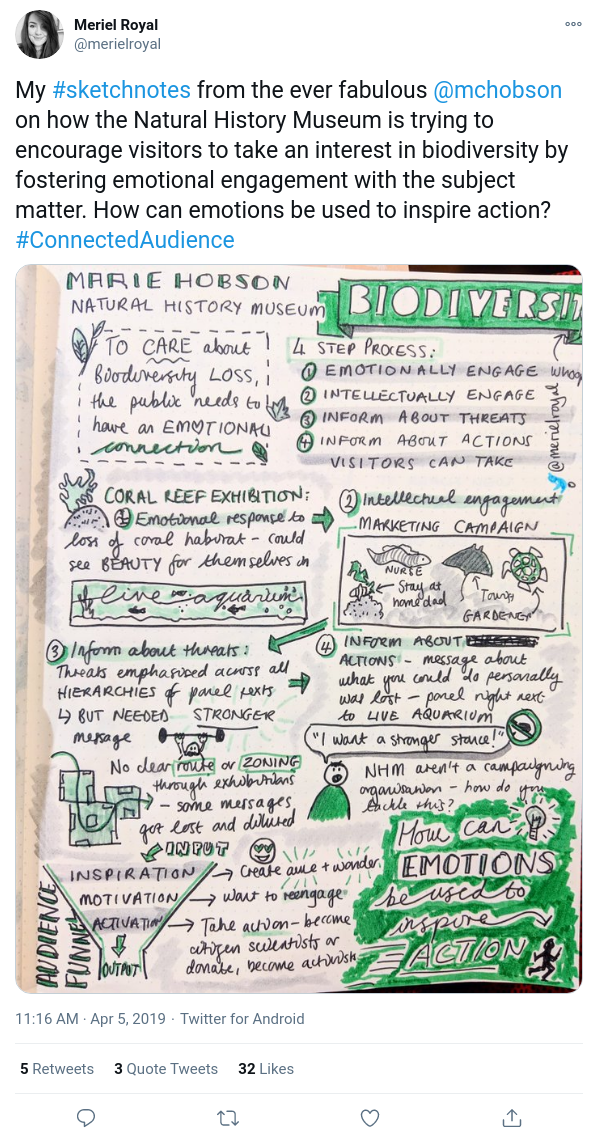 Meriel Royal
@merielroyal
My #sketchnotes from the ever fabulous @mchobson
on how the Natural History Museum is trying to
encourage visitors to take an interest in biodiversity by
fostering emotional engagement with the subject
matter. How can emotions be used to inspire action?
#ConnectedAudience
MARIE HOBSON
NATURAL HISTORY MUSEUM
BIODIVERSIT
TO CARE about
Biodiversity LOSS,
the public needs to
have an EMOTIONAL
connection
4 STEP PROCESS:
1 EMOTIONALLY ENGAGE
2 INTELLECTUALLY ENGAGE
3 INFORM ABOUT THREATS
4 INFORM ABOUT ACTIONS
VISITORS CAN TAKE
@merielroyal
CORAL REEF EXHIBITION:
1 Emotional response to
loss of coral habitat - could
see BEAUTY for themselves in
live aquarium
2 Intellectual engagement
MARKETING CAMPAIGN
NURSE
Stay at
home dad
Town
GARDENER
3 Inform about threats:
Threats emphasised across all
HIERARCHIES of panel texts
↳ BUT NEEDED STRONGER
message
No clear route or ZONING
through exhibitions
- some messages
got lost and diluted
4 INFORM ABOUT
ACTIONS - message about
what you could do personally
was lost - panel right next
to LIVE AQUARIUM
"I want a stronger stance!"
NHM aren't a campaigning
organisation - how do you
tackle this?
AUDIENCE
FUNNEL
INPUT
INSPIRATION → Create awe + wonder
MOTIVATION → want to reengage
ACTIVATION → Take action - become
citizen scientists or
donate, become activish
OUTPUT
How can
EMOTIONS
be used to
inspire
ACTION
11:16 AM · Apr 5, 2019 · Twitter for Android
5 Retweets 3 Quote Tweets 32 Likes